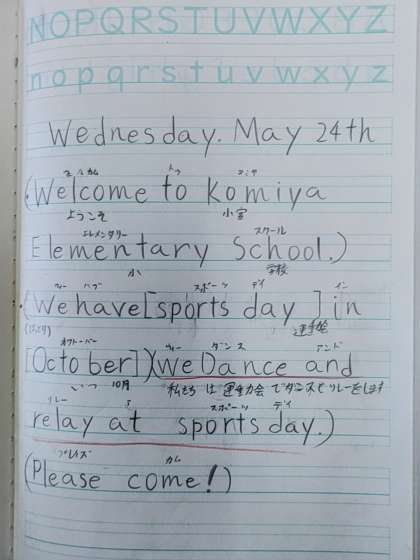 NOPQRSTUVWXYZ
nopqrstuvwxyz
Wednesday. May 24th
ウェルカム トゥ コミヤ
(Welcome to komiya
ようこそ 小宮
エレメンタリー スクール
Elementary School.)
小 学校
ウィー ハブ スポーツ デイ イン
(We have [sports day] in
運動会
オクトーバー ウィー ダンス アンド
[October])(we Dance and
いつ 10月 私たち は 運動会 でダンスとリレーをします
リレー スポーツ デイ
relay at sports day.)
プレイズ カム
(Please come!)